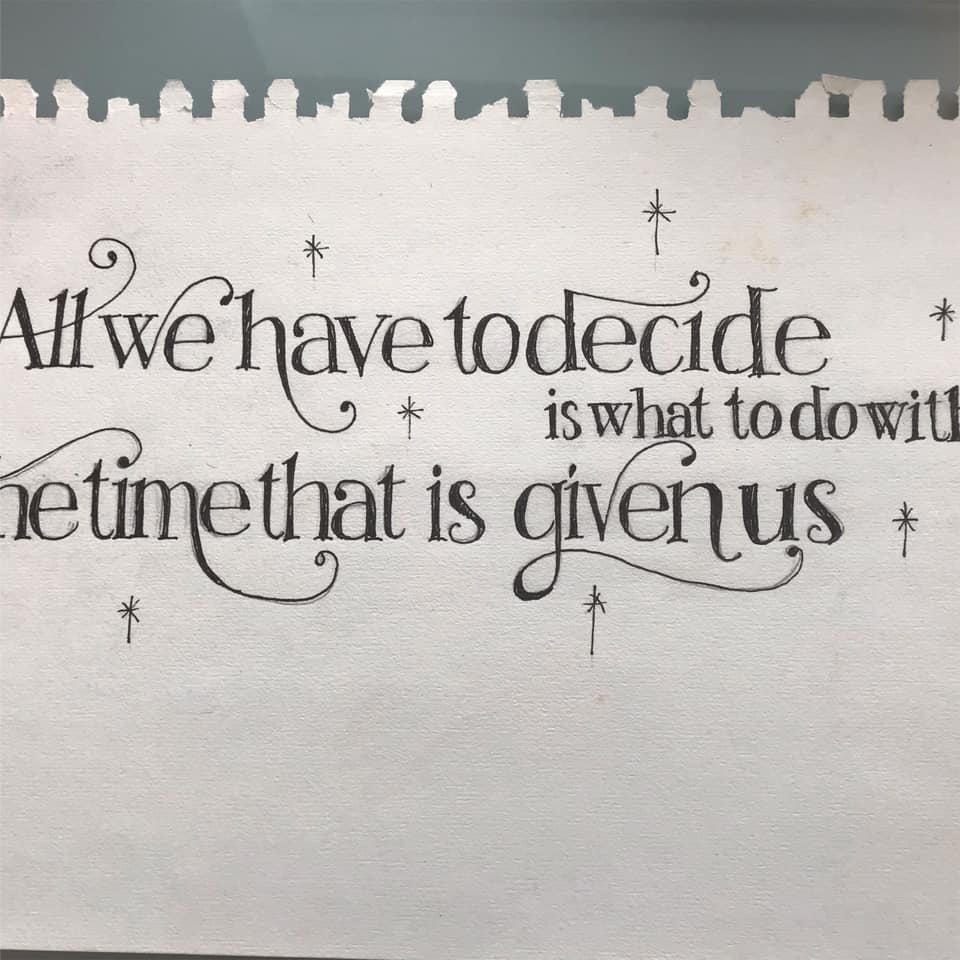 All we have to decide
is what to do with
he time that is given us